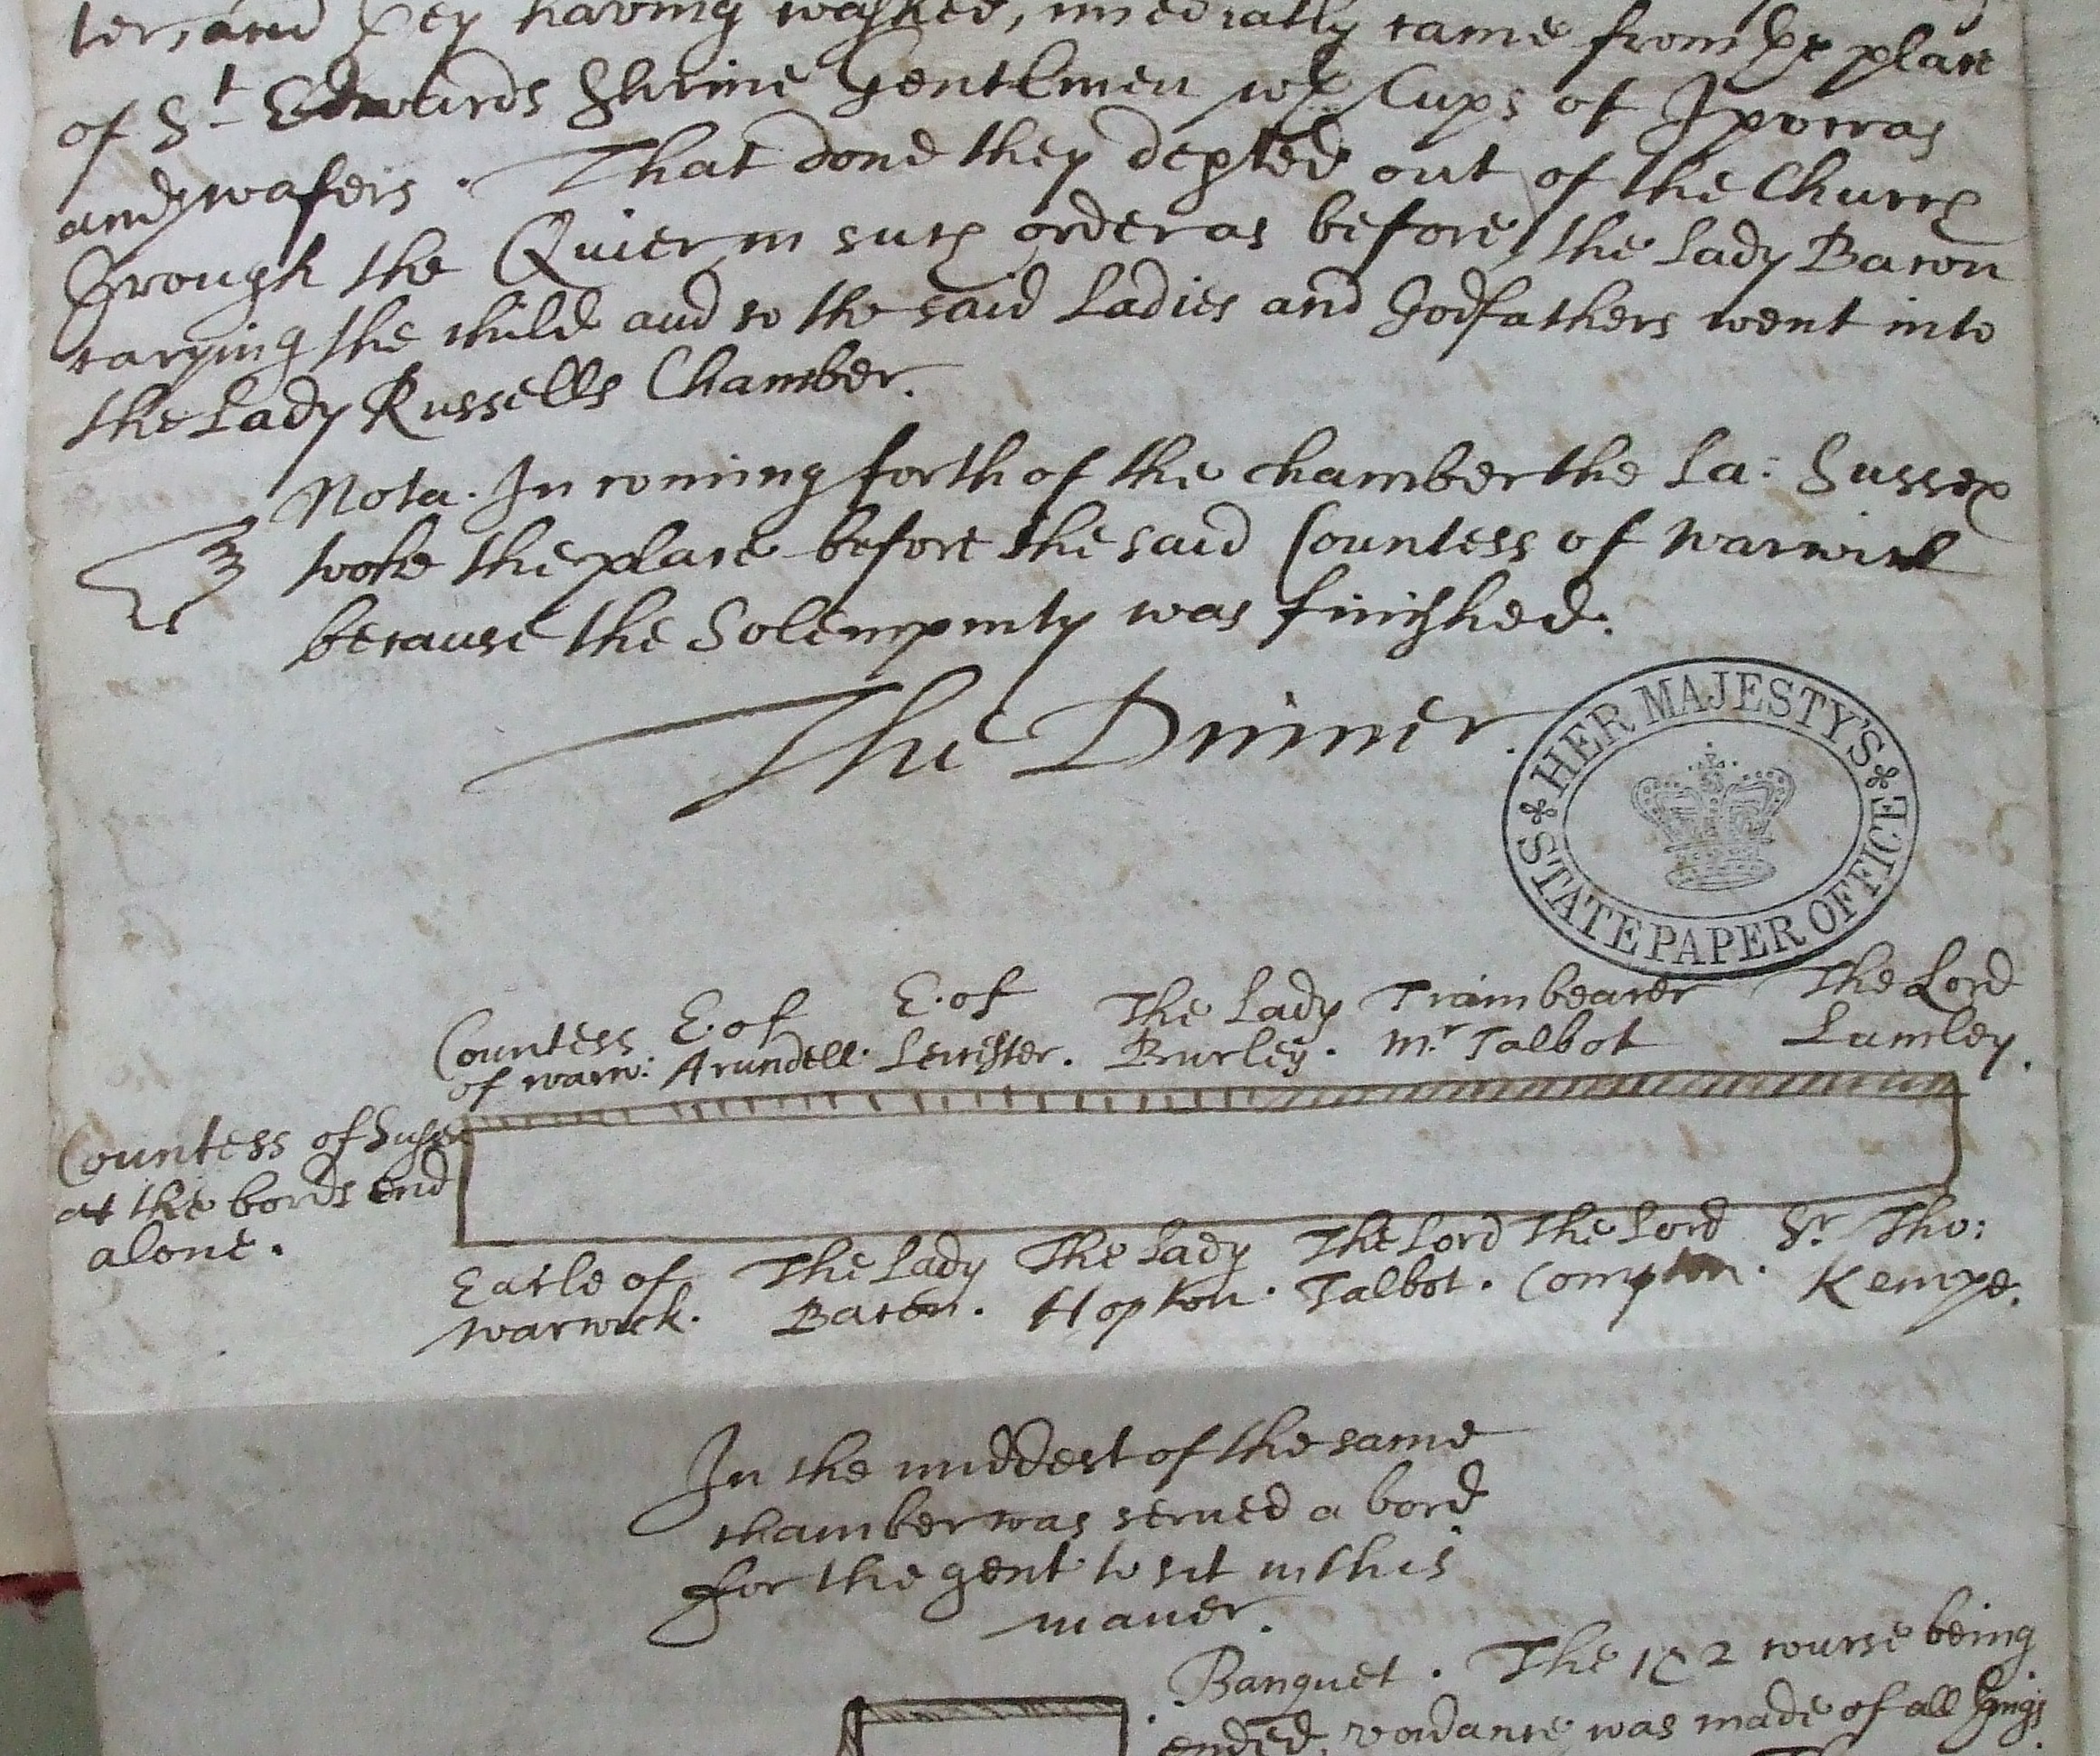 ter, and they having washed, imediatly came from the place
of St Edwards Shrine Gentlmen wth Cups of Ipocras
and wafers. That done they depted out of the Church
through the Quier in such order as before, the Lady Bacon
carying the child and so the said Ladies and Godfathers went into
the Lady Russells Chamber.
Nota. In coming forth of the chamber the La: Sussex
tooke the place before the said Countess of Warwick
because the Solempnity was finished.
The Dinner.
HER MAJESTY'S
STATE PAPER OFFICE
Countess E. of E. of The Lady Trainbearer The Lord
of warw: Arundell. Leicester. Burley. Mr Talbot Lumley.
Countess of Sussex
at the bords end
alone.
Earle of The Lady The Lady The Lord The Lord Sr Tho:
Warwick. Bacon. Hopton. Talbot. Compton. Kempe.
In the middest of the same
chamber was served a bord
for the gent to sit in this
maner.
Banquet. The 1 & 2 course being
ended, voidance was made of all things